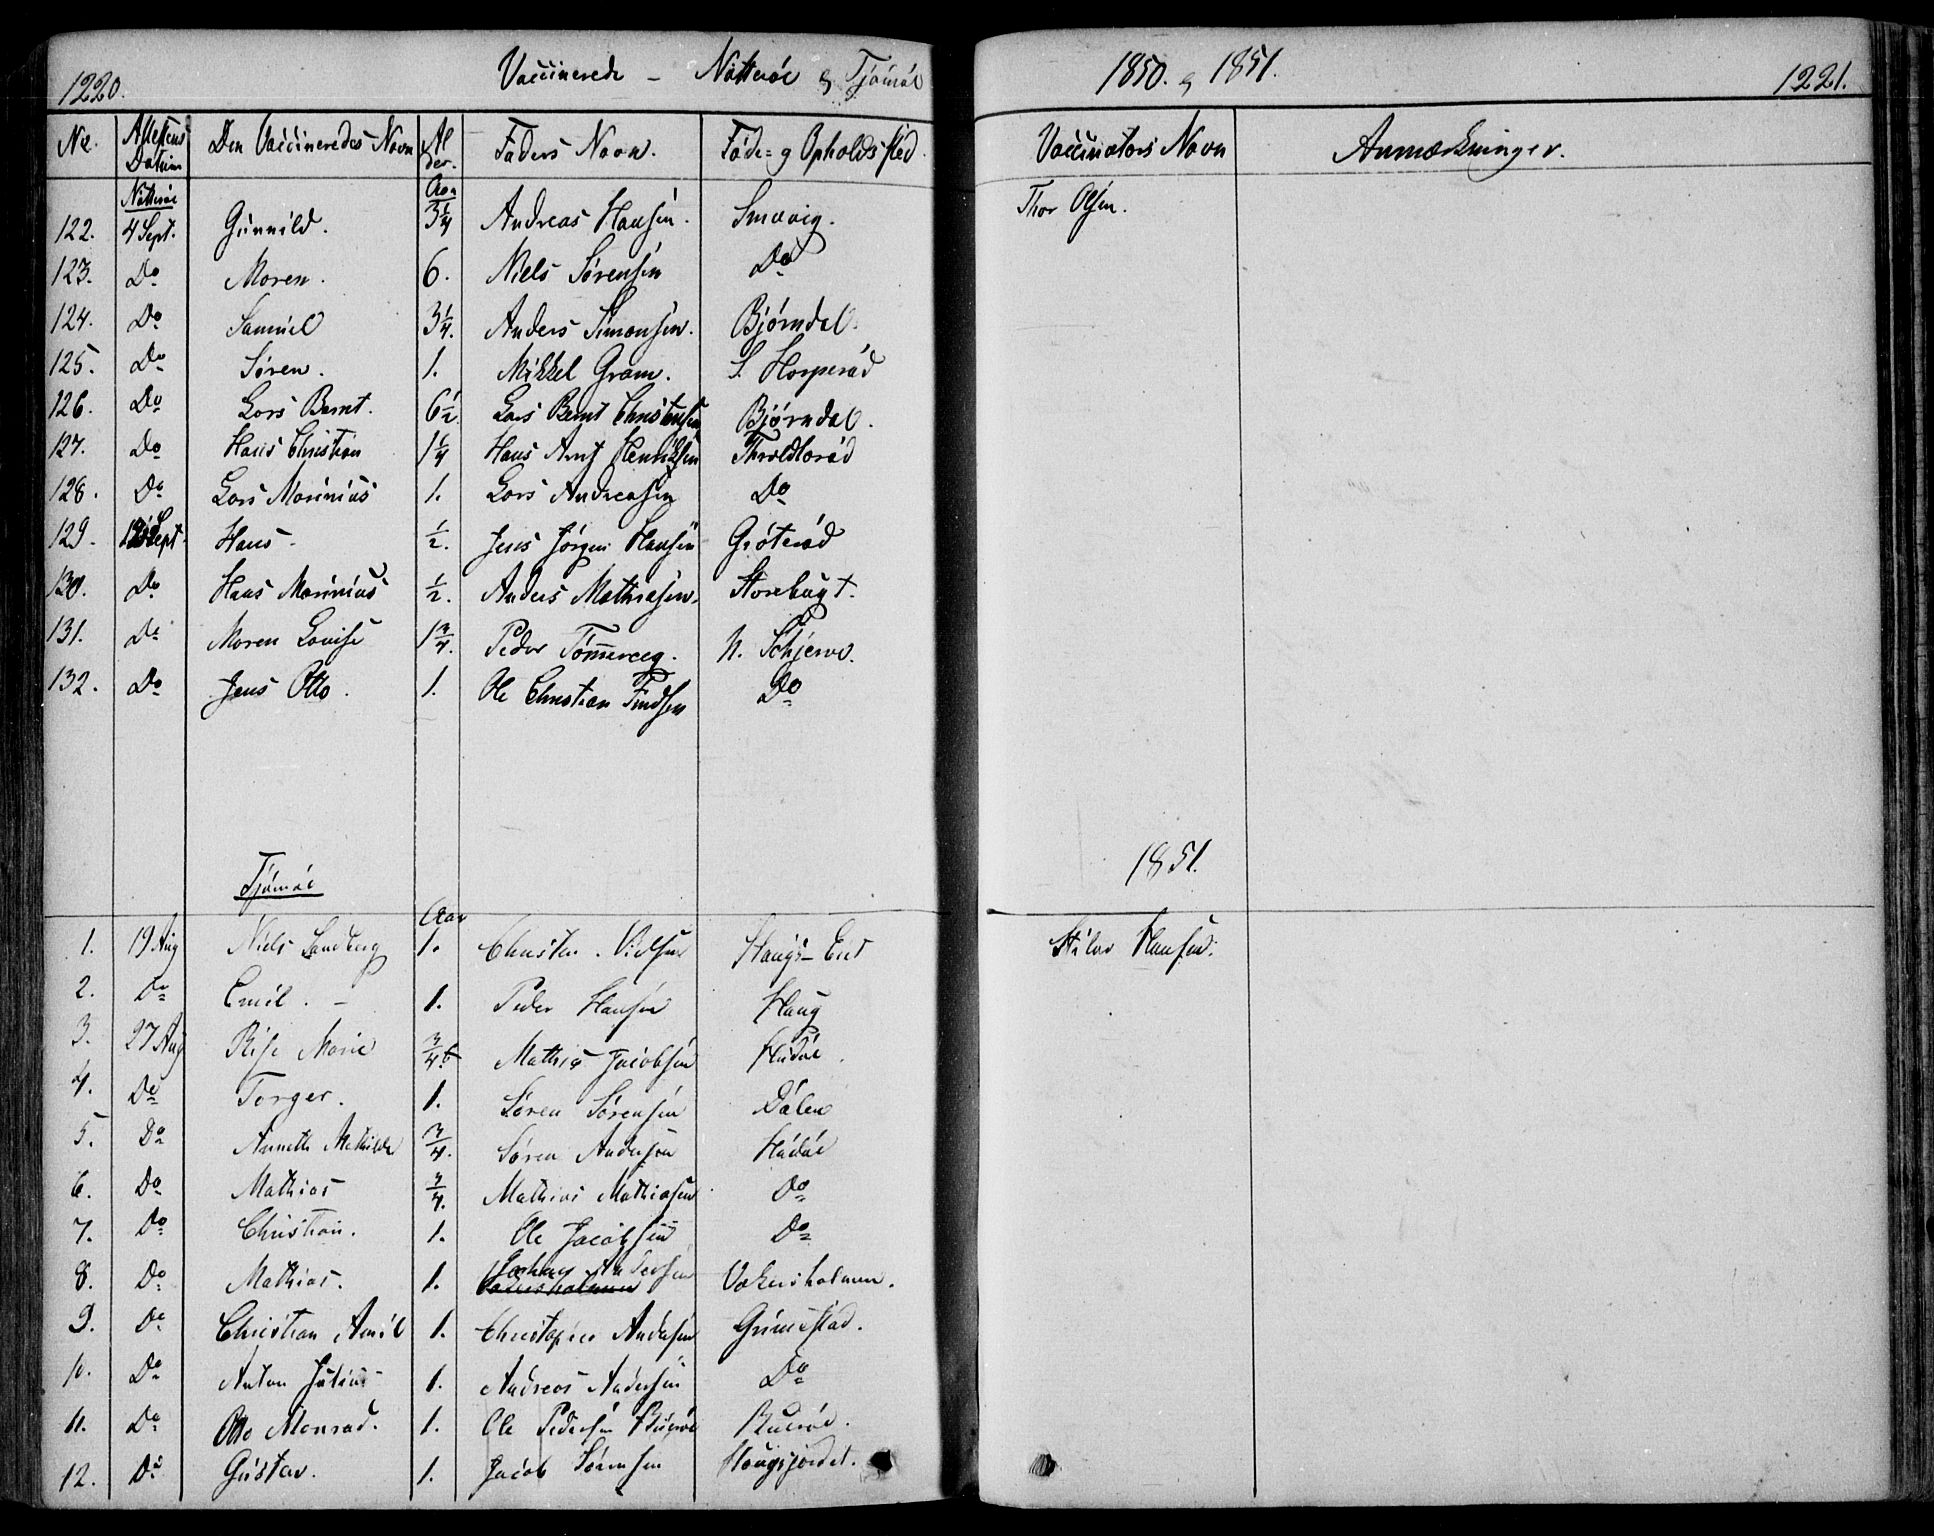 1220. Vaccinerede – Nötteröe & Tjömöe 1850. & 1851. 1221.
No. Attestens Datum Den Vaccineredes Navn Alder. Faders Navn. Føde- og Opholdssted. Vaccinators Navn Anmærkninger.
Nötteröe Aar
122. 4 Sept. Gunnild. 3 1/4 Andreas Hansen. Smævig. Thor Olsen.
123. Do Maren. 6. Niels Sørensen Do
124. Do Samuel 3 1/4. Anders Simonsen. Bjørndal.
125. Do Søren. 1. Mikkel Gram. S. Horperød
126. Do Lars Bernt. 6 1/2 Lars Bernt Christensen Bjørndal.
127. Do Hans Christian 1 1/4 Hans Arnt Henriksen
128. Do Lars Marinius 1. Lars Andreasen Do
129. Sept Hans – 1/2. Jens Jørgen Hansen Gröteröd
130. Do Hans Marinius 1/2. Anders Mathiasen. Storebugt.
131. Do Maren Louise 1 3/4. Peder N. Schjerve.
132. Do Jens Otto. 1. Ole Christian Findsen Do
Tjömöe 1851.
Aar
1. 19 Aug Niels Sandberg 1. Christen Haugs-Eiet Hansen.
2. Do Emil. – 1. Peder Hansen Haug
3. 27 Aug Marie 3/4 Mathias Jacobsen Hudøe.
4. Do Torger. 1. Søren Sørensen Dalen
5. Do Annette Mathilde 3/4. Søren Andersen Hudøe
6. Do Mathias 3/4. Mathias Mathiasen Do
7. Do Christian. 1. Ole Jacobsen Do
8. Do Mathias. 1. Andersen Vakersholmen.
9. Do Christian Amil 1. Christopher Andersen Grimestad.
10. Do Anton Julius 1. Andreas Andersen Do
11. Do Otto Monrad. 1. Ole Pedersen Bueröe Bueröe.
12. Do Gustav. 1. Jacob Sørensen Haugsjordet.